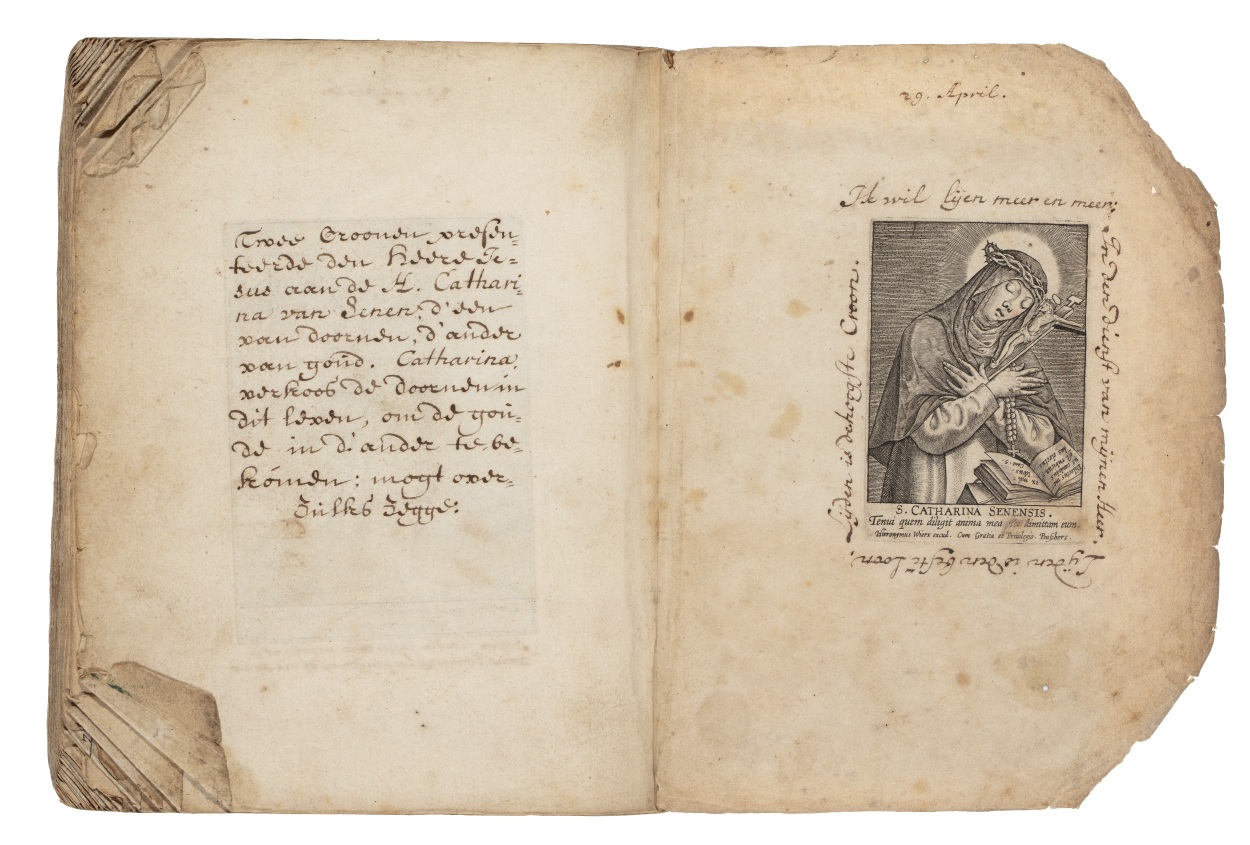 Twee Croonen presen-
teerde den Heere Je-
sus aan de H. Cathari-
na van Senen; d'een
van doornen, d'ander
van goud. Catharina
verkoos de doornen in
dit leven, om de gou-
de in d'ander te be-
komen; mogt over-
zulks zegge:
29. April.
Ik wil lijen meer en meer;
In den dienst van mijnen Heer.
Lijden is den beste Loon;
Lijden is de hoogste Croon.
S. CATHARINA SENENSIS.
Tenui quem diligit anima mea nec dimittam eum.
Hieronymus Wierx excud. Cum Gratia et Privilegio. Buschere.